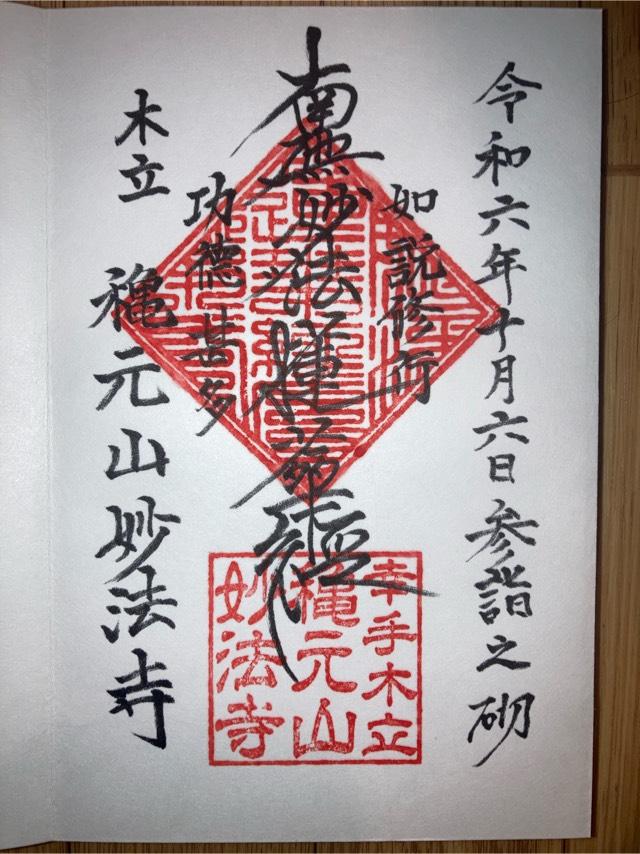 令和六年十月六日参詣之砌
如説修行
南無妙法蓮華経
功徳甚多
木立
穐元山妙法寺
幸手木立
穐元山
妙法寺